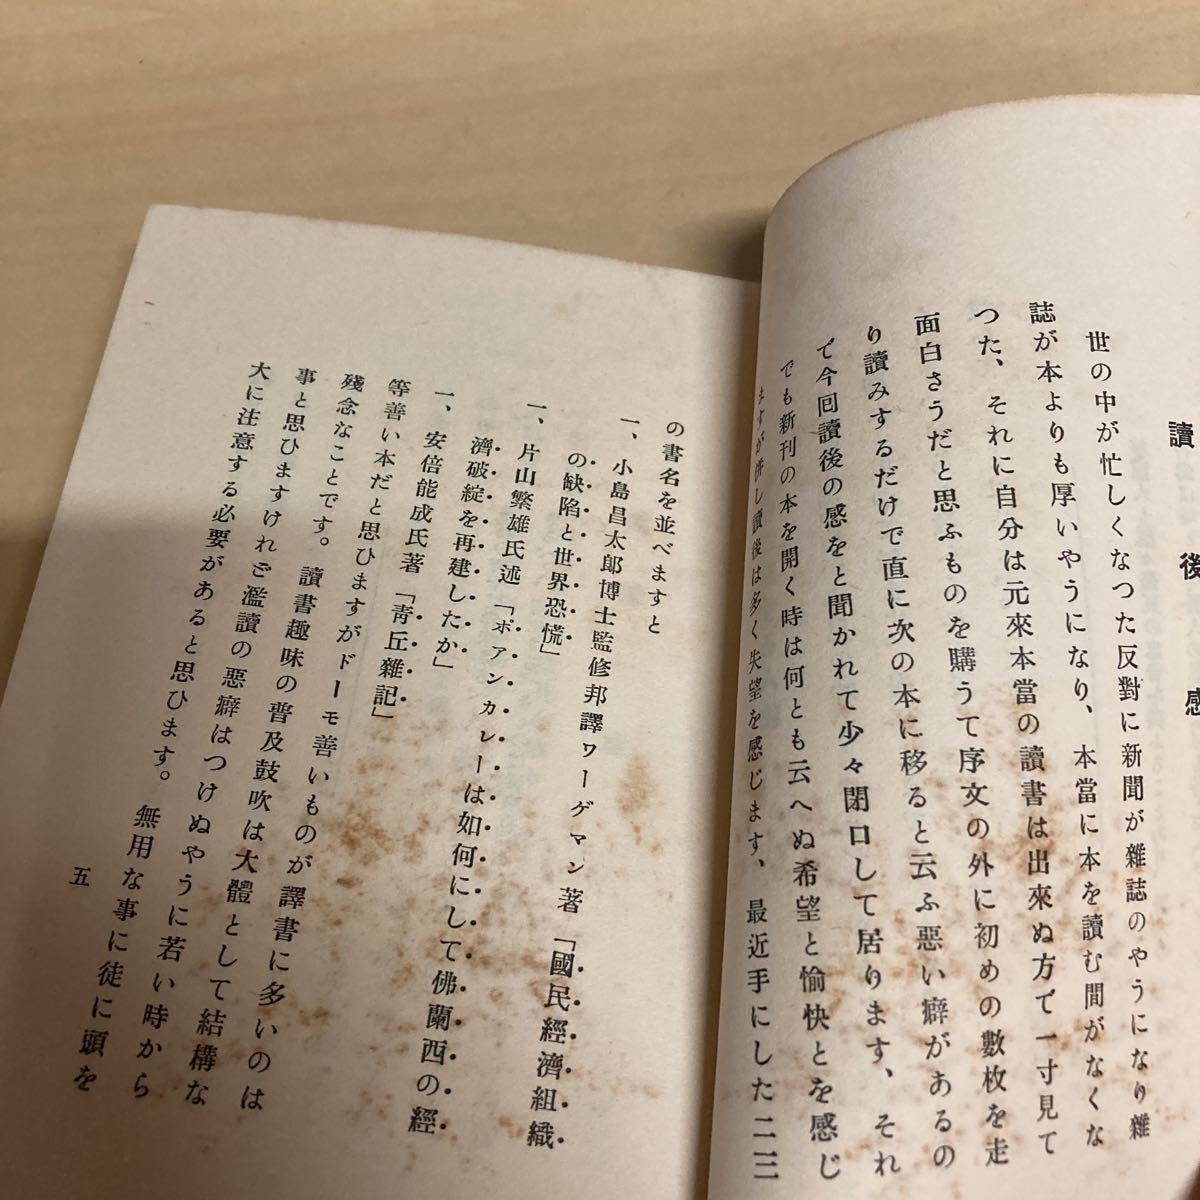 讀後感
世の中が忙しくなつた反對に新聞が雜誌のやうになり雜
誌が本よりも厚いやうになり、本當に本を讀む間がなくな
つた、それに自分は元來本當の讀書は出來ぬ方で一寸見て
面白さうだと思ふものを購うて序文の外に初めの數枚を走
り讀みするだけで直に次の本に移ると云ふ悪い癖があるの
で今回讀後の感をと聞かれて少々閉口して居ります、それ
でも新刊の本を開く時は何とも云へぬ希望と愉快とを感じ
ますが併し讀後は多く失望を感じます、最近手にした二三
の書名を並べますと
一、小島昌太郎博士監修邦譯ワーゲマン著「國民經濟組織
の缺陷と世界恐慌」
一、片山繁雄氏述「ポアンカレーは如何にして佛蘭西の經
濟破綻を再建したか」
一、安倍能成氏著「靑丘雜記」
等善い本だと思ひますがドーモ善いものが譯書に多いのは
殘念なことです。讀書趣味の普及鼓吹は大體として結構な
事と思ひますけれど濫讀の悪癖はつけぬやうに若い時から
大に注意する必要があると思ひます。無用な事に徒に頭を
五